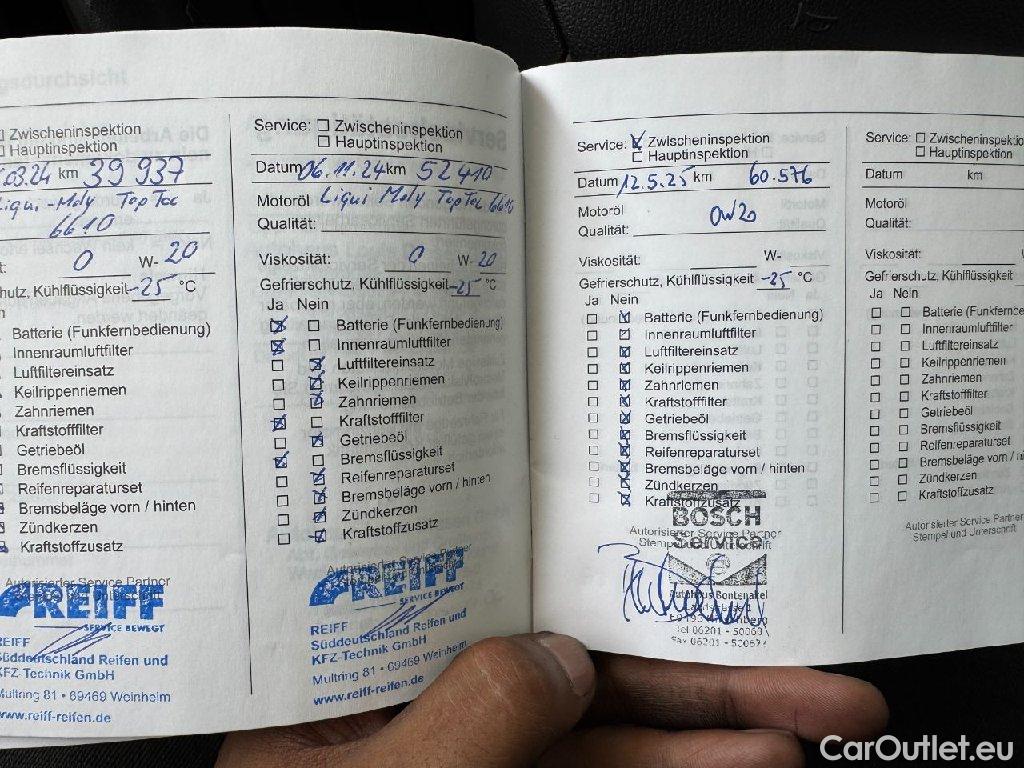 Zwischeninspektion
Hauptinspektion
.03.24 km 39 937
Liqui-Moly Top Tec
6610
0 W- 20
Kühlflüssigkeit -25 °C
Batterie (Funkfernbedienung)
Innenraumluftfilter
Luftfiltereinsatz
Keilrippenriemen
Zahnriemen
Kraftstofffilter
Getriebeöl
Bremsflüssigkeit
Reifenreparaturset
Bremsbeläge vorn / hinten
Zündkerzen
Kraftstoffzusatz
Autorisierter Service Partner
REIFF
SERVICE BEWEGT
Süddeutschland Reifen und
KFZ-Technik GmbH
Multring 81 • 69469 Weinheim
www.reiff-reifen.de
Service: Zwischeninspektion
Hauptinspektion
Datum 06.11.24 km 52410
Motoröl Liqui Moly Top Tec 6610
Qualität:
Viskosität: 0 W- 20
Gefrierschutz, Kühlflüssigkeit -25 °C
Ja Nein
Batterie (Funkfernbedienung)
Innenraumluftfilter
Luftfiltereinsatz
Keilrippenriemen
Zahnriemen
Kraftstofffilter
Getriebeöl
Bremsflüssigkeit
Reifenreparaturset
Bremsbeläge vorn / hinten
Zündkerzen
Kraftstoffzusatz
Autorisierter Service Partner
REIFF
SERVICE BEWEGT
REIFF
Süddeutschland Reifen und
KFZ-Technik GmbH
Multring 81 • 69469 Weinheim
www.reiff-reifen.de
Service: Zwischeninspektion
Hauptinspektion
Datum 12.5.25 km 60.576
Motoröl
Qualität: 0W20
Viskosität: W-
Gefrierschutz, Kühlflüssigkeit -25 °C
Ja Nein
Batterie (Funkfernbedienung)
Innenraumluftfilter
Luftfiltereinsatz
Keilrippenriemen
Zahnriemen
Kraftstofffilter
Getriebeöl
Bremsflüssigkeit
Reifenreparaturset
Bremsbeläge vorn / hinten
Zündkerzen
Kraftstoffzusatz
BOSCH
Autorisierter Service Partner
Service
Autohaus
Tel 06201 -
Fax 06201 -
Service: Zwischeninspektio
Hauptinspektion
Datum km
Motoröl
Qualität:
Viskosität: W-
Gefrierschutz, Kühlflüssigkeit
Ja Nein
Batterie (Funkfernbed
Innenraumluftfilter
Luftfiltereinsatz
Keilrippenriemen
Zahnriemen
Kraftstofffilter
Getriebeöl
Bremsflüssigkeit
Reifenreparaturset
Bremsbeläge vorn / hi
Zündkerzen
Kraftstoffzusatz
Autorisierter Service Partner
Stempel und Unterschrift
CarOutlet.eu